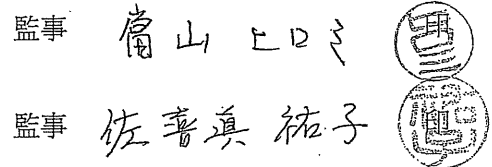 監事 當山 ヒロミ
監事 佐喜眞 祐子